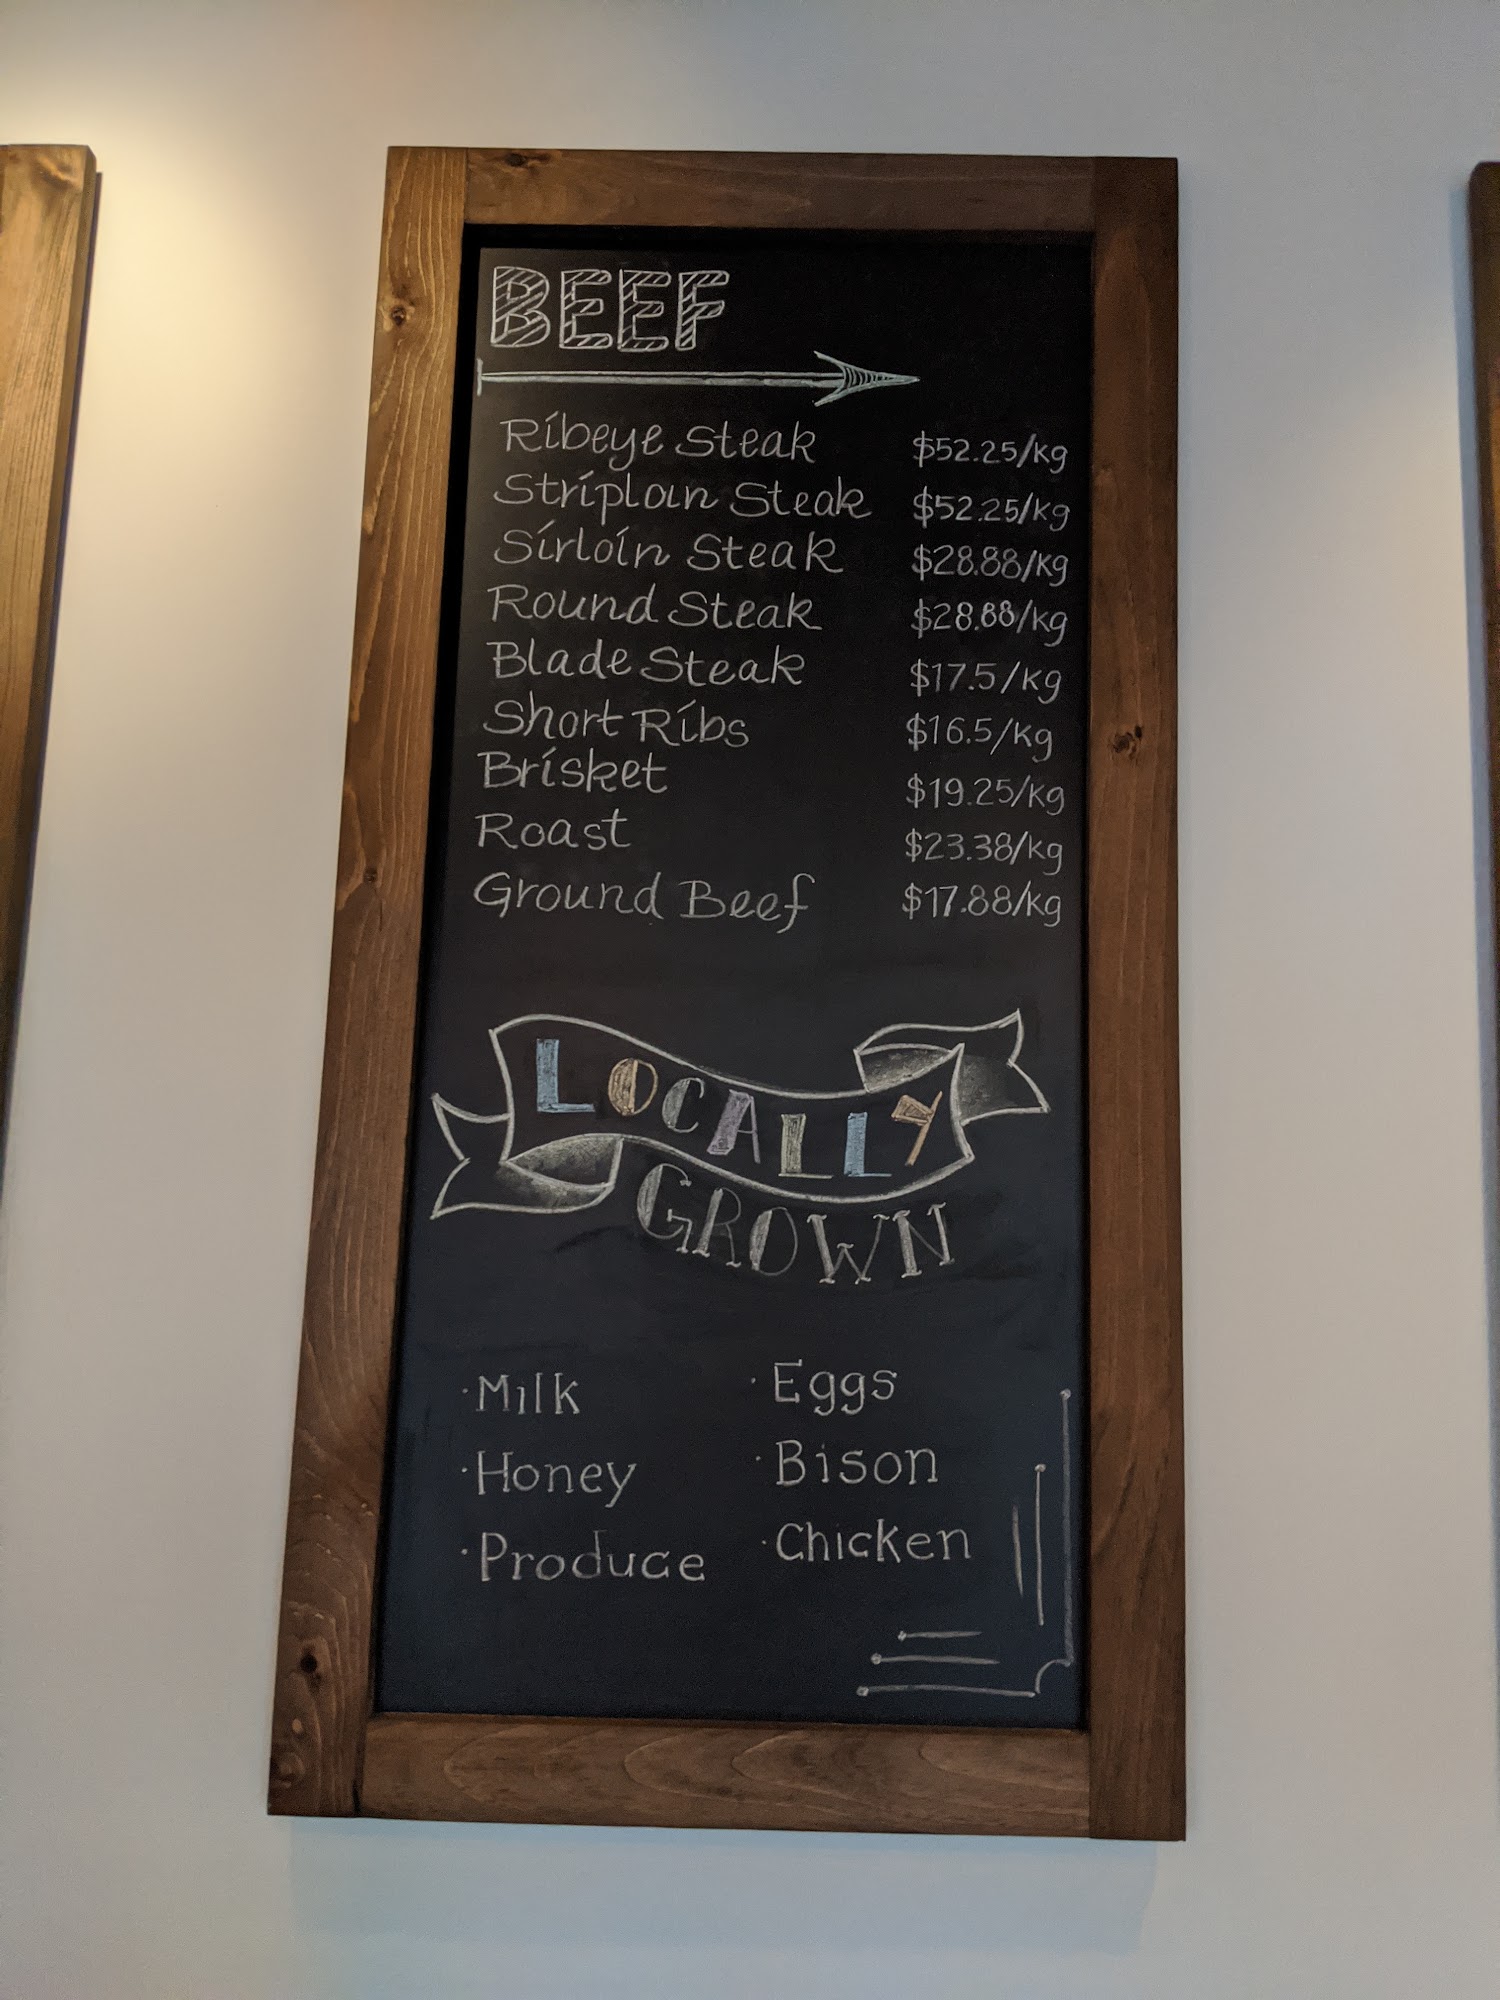 BEEF
Ribeye Steak $52.25/kg
Striploin Steak $52.25/kg
Sirloin Steak $28.88/kg
Round Steak $28.88/kg
Blade Steak $17.5/kg
Short Ribs $16.5/kg
Brisket $19.25/kg
Roast $23.38/kg
Ground Beef $17.88/kg
LOCALLY
GROWN
· Milk · Eggs
· Honey · Bison
· Produce · Chicken